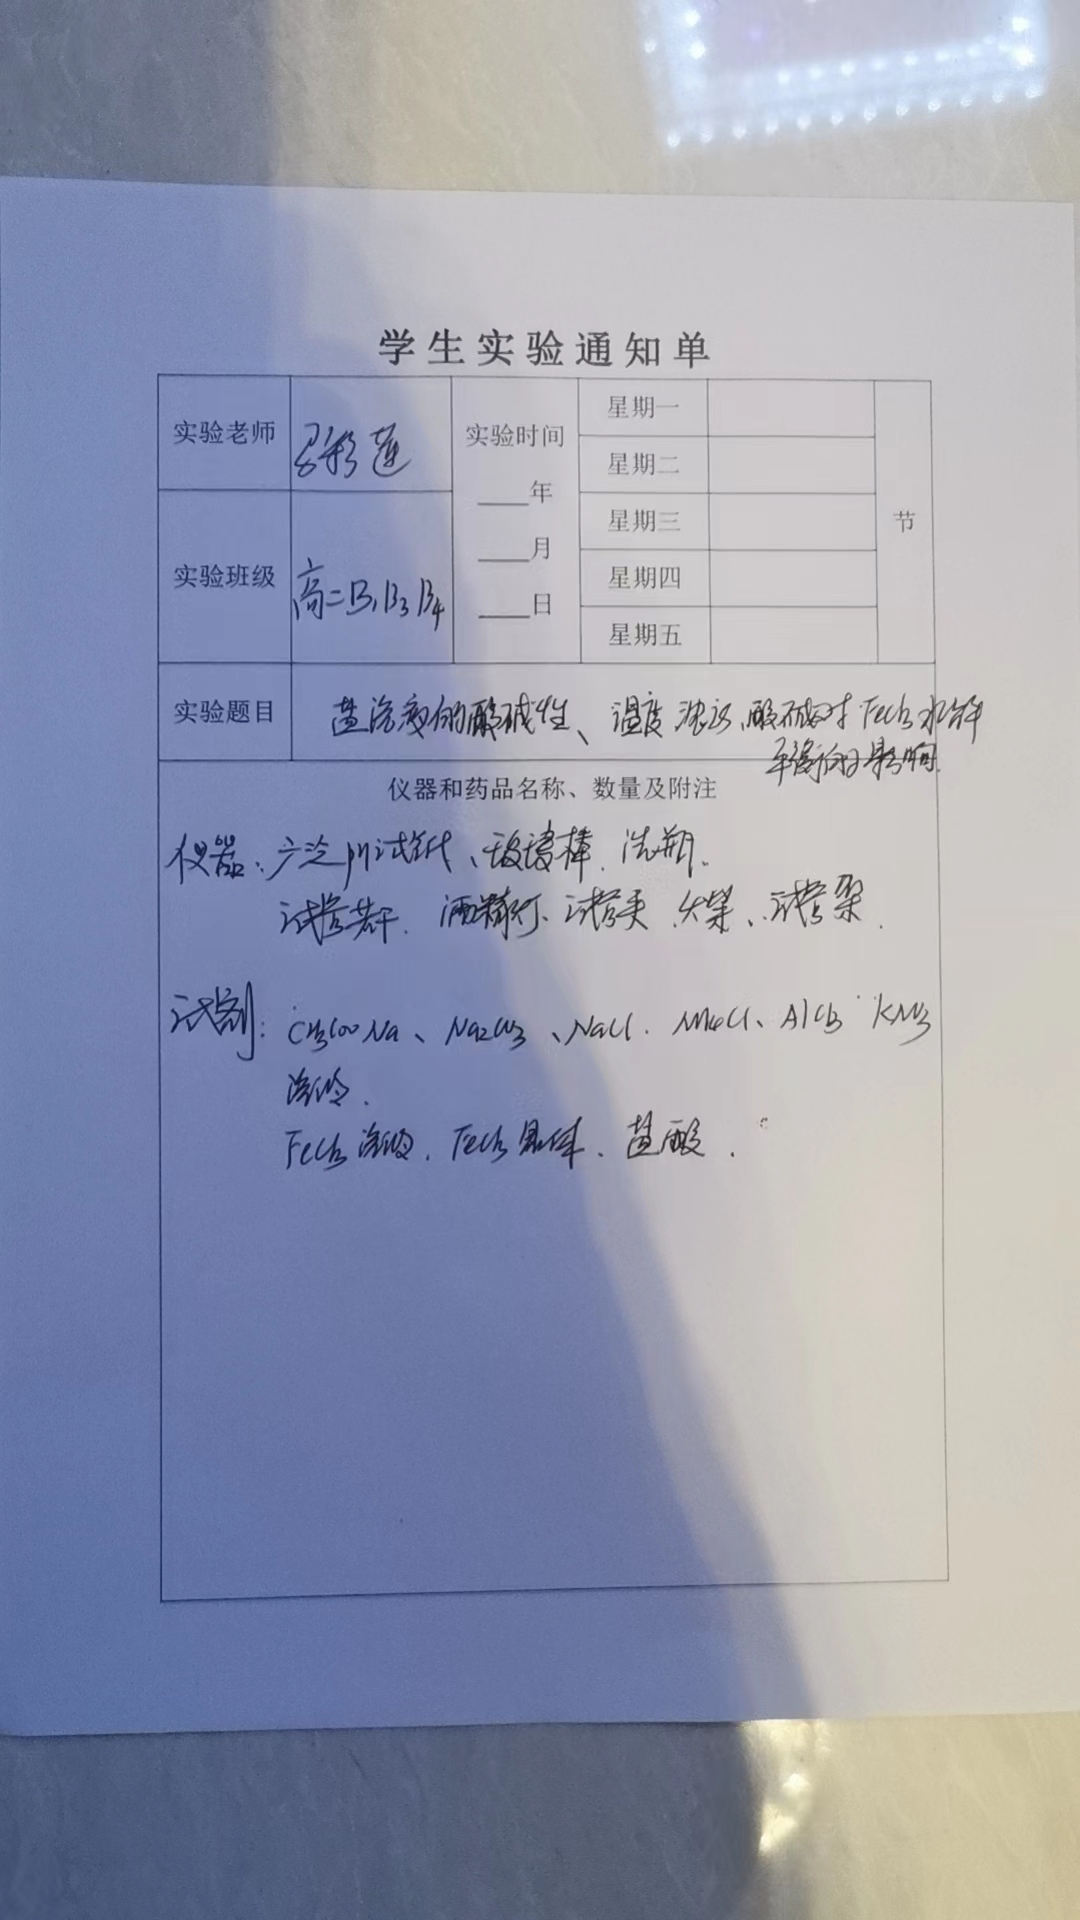 学生实验通知单
实验老师 彩莲 实验时间 星期一
星期二
___年
星期三 节
___月
实验班级 高二B1 B3 B4 星期四
___日
星期五
实验题目 盐溶液的酸碱性、温度 浓度、酸碱对FeCl3水解
平衡的影响.
仪器和药品名称、数量及附注
仪器: 广泛pH试纸、玻璃棒. 洗瓶.
试管若干. 酒精灯、试管夹、火柴、试管架.
试剂: CH3COONa、Na2CO3、NaCl. NH4Cl、AlCl3、KNO3
溶液.
FeCl3溶液. FeCl3晶体. 盐酸.